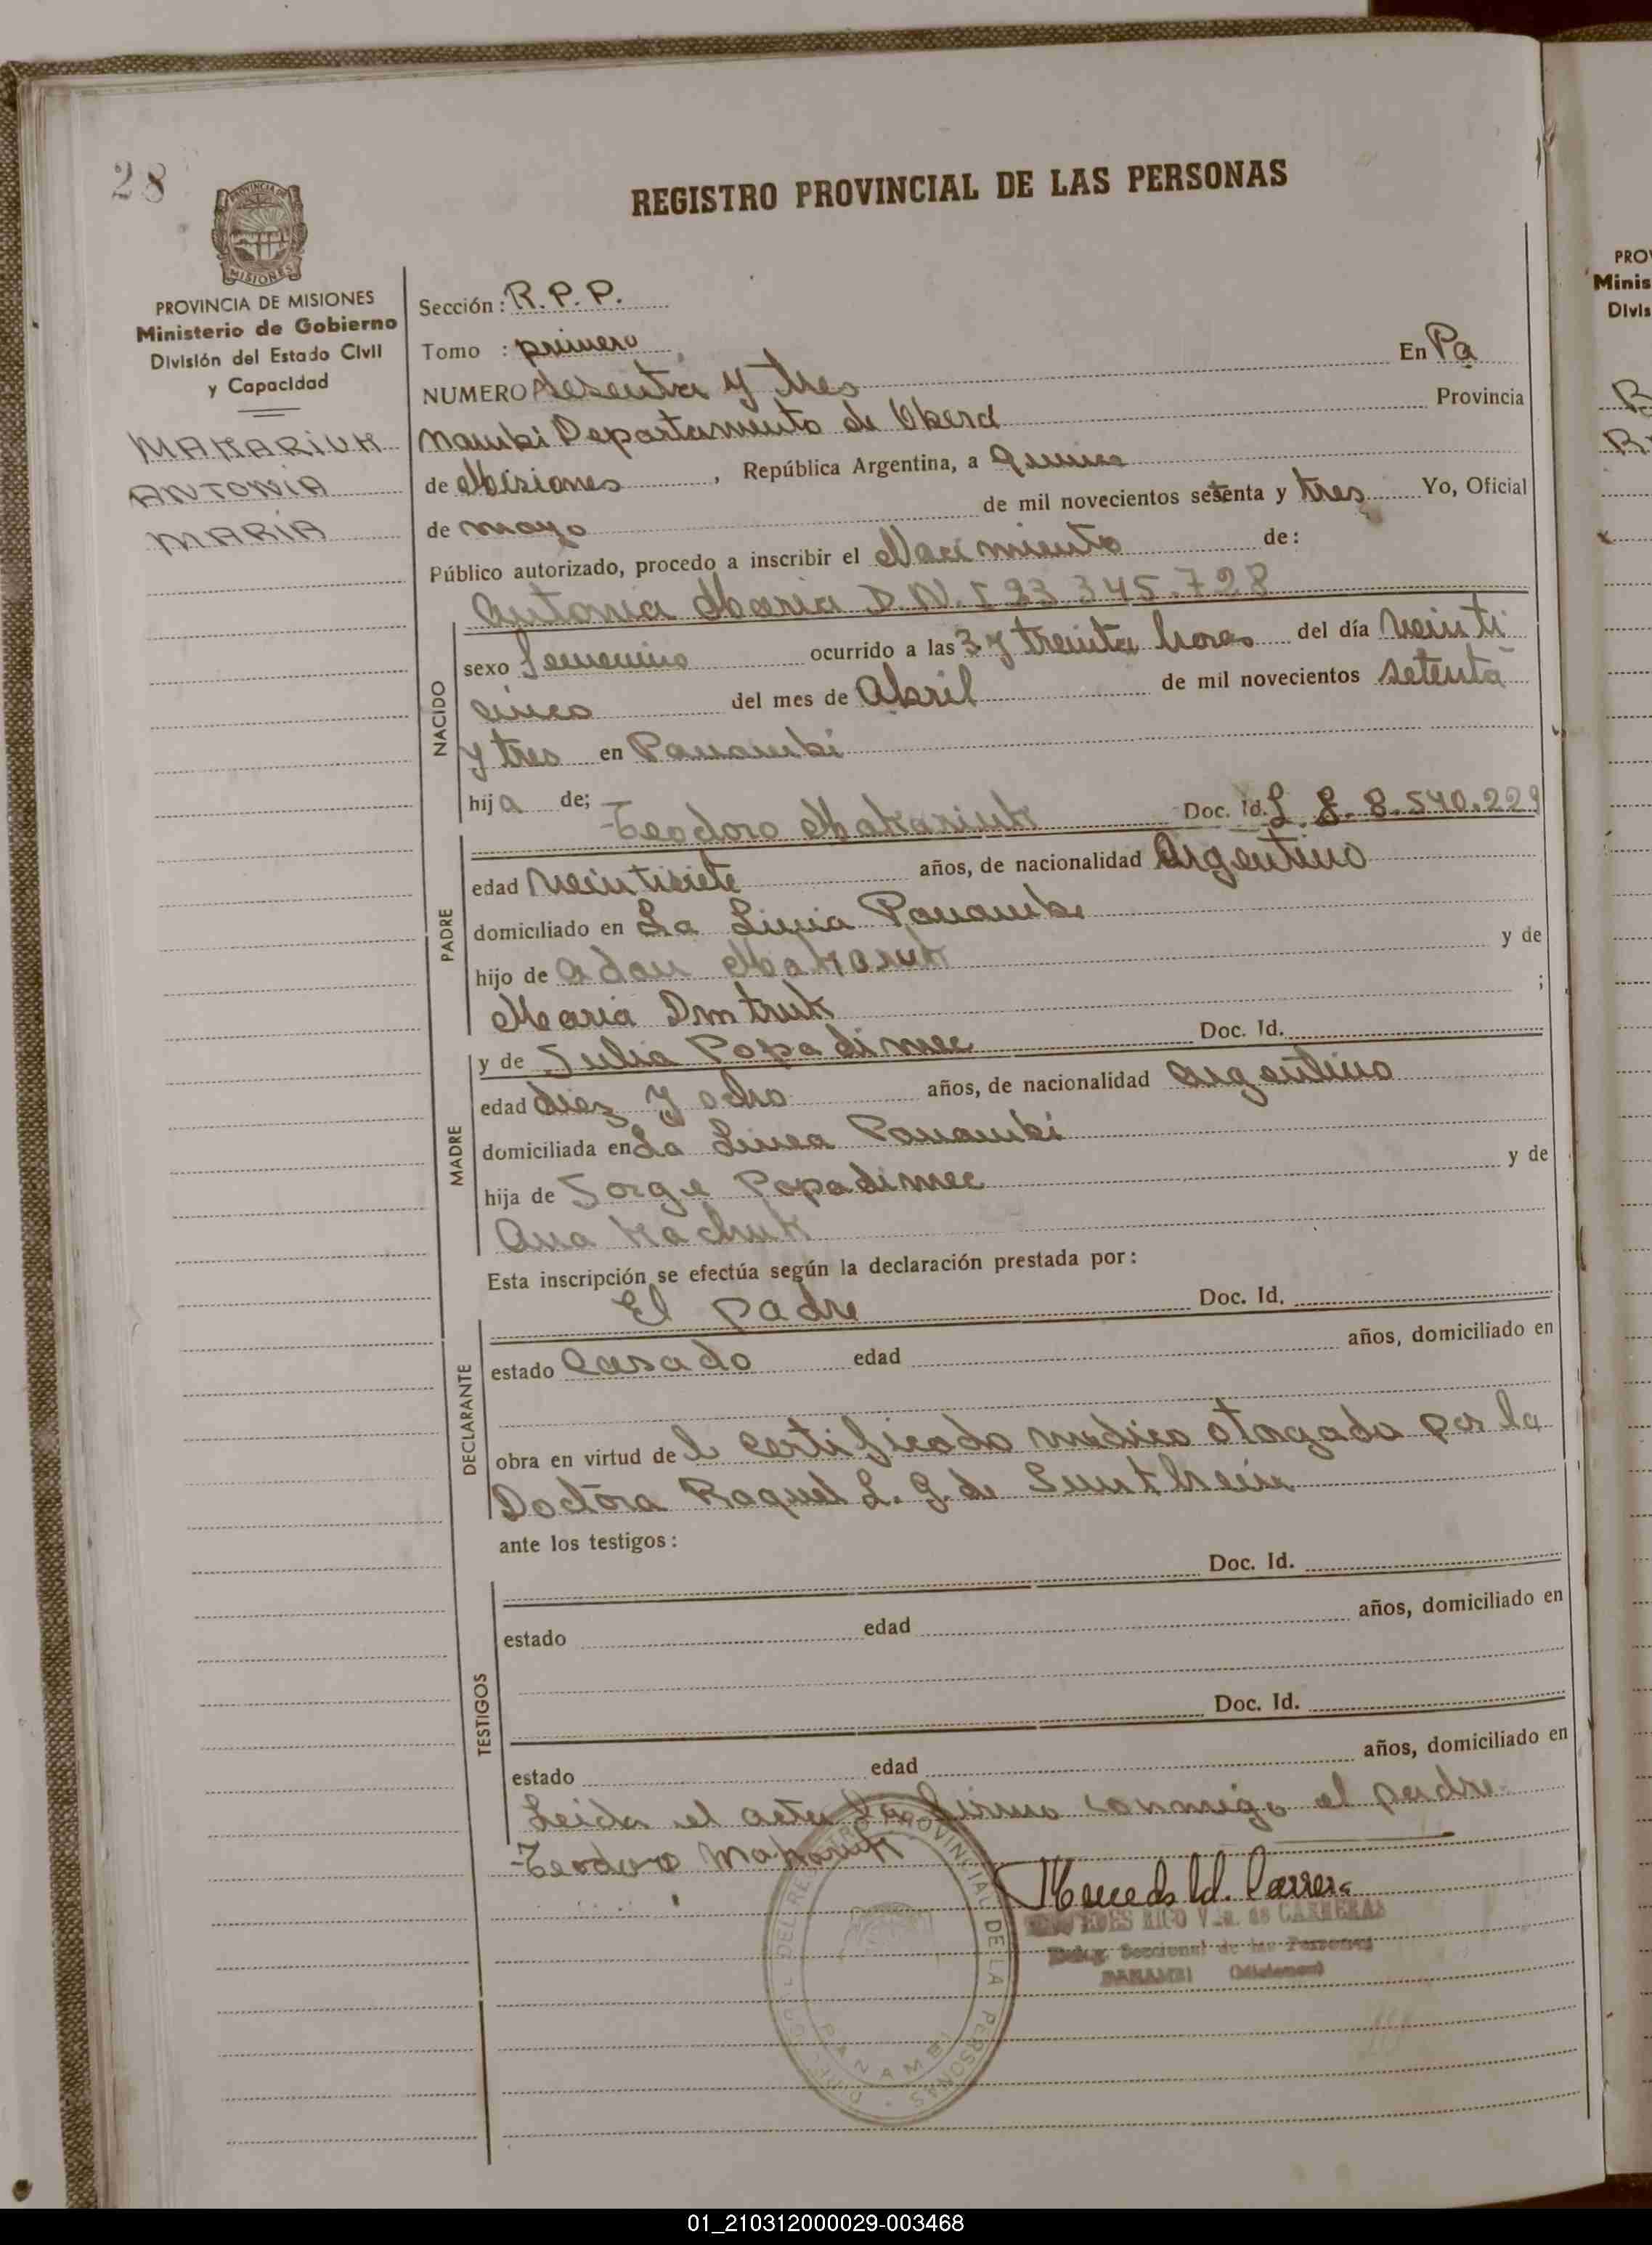 28
REGISTRO PROVINCIAL DE LAS PERSONAS
PROVINCIA DE MISIONES
MISIONES
PROVINCIA DE MISIONES
Ministerio de Gobierno
División del Estado Civil
y Capacidad
MAKARIUK
ANTONIA
MARIA
Sección: R.P.P.
Tomo : primero
NUMERO sesenta y tres En Pa
nambi Departamento de Oberá Provincia
de Misiones, República Argentina, a quince
de mayo de mil novecientos setenta y tres Yo, Oficial
Público autorizado, procedo a inscribir el Nacimiento de:
Antonia Maria D.N.I 23.345.728
NACIDO
sexo femenino ocurrido a las 3 y treinta horas del día veinti
cinco del mes de Abril de mil novecientos setenta
y tres en Panambi
hija de;
PADRE
Teodoro Makariuk Doc. Id. L. E. 8.540.229
edad veintisiete años, de nacionalidad Argentino
domiciliado en La Linia Panambi
hijo de Adan Makaruk y de
Maria Dmtruk ;
MADRE
y de Julia Popadinec Doc. Id.
edad diez y ocho años, de nacionalidad argentino
domiciliada en La Linea Panambi
hija de Jorge Popadinec y de
Ana Kachuk
Esta inscripción se efectúa según la declaración prestada por:
DECLARANTE
El padre Doc. Id.
estado Casado edad años, domiciliado en
obra en virtud del certificado medico otogado por la
Doctora Raquel L. G. de
ante los testigos:
TESTIGOS
Doc. Id.
estado edad años, domiciliado en
Doc. Id.
estado edad años, domiciliado en
Leida el acta la firma conmigo el padre
Teodoro Makariuk
MERCEDES RICO Vda. de CARRERAS
Deleg. Seccional de las Personas
PANAMBI (Misiones)
DEL REGISTRO PROVINCIAL DE LA PERSONAS
PANAMBI
01_210312000029-003468